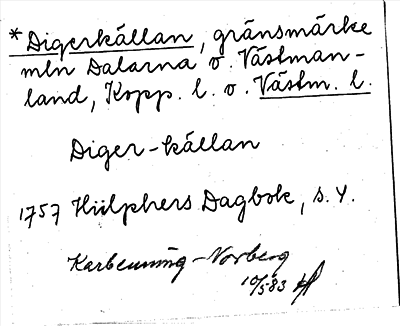 *Digerkällan, gränsmärke
mln Dalarna o. Västman-
land, Kopp. l. o. Västm. l.
Diger-källan
1757 Hülphers Dagbok, s. 4.
Karbenning-Norberg
10/5 83